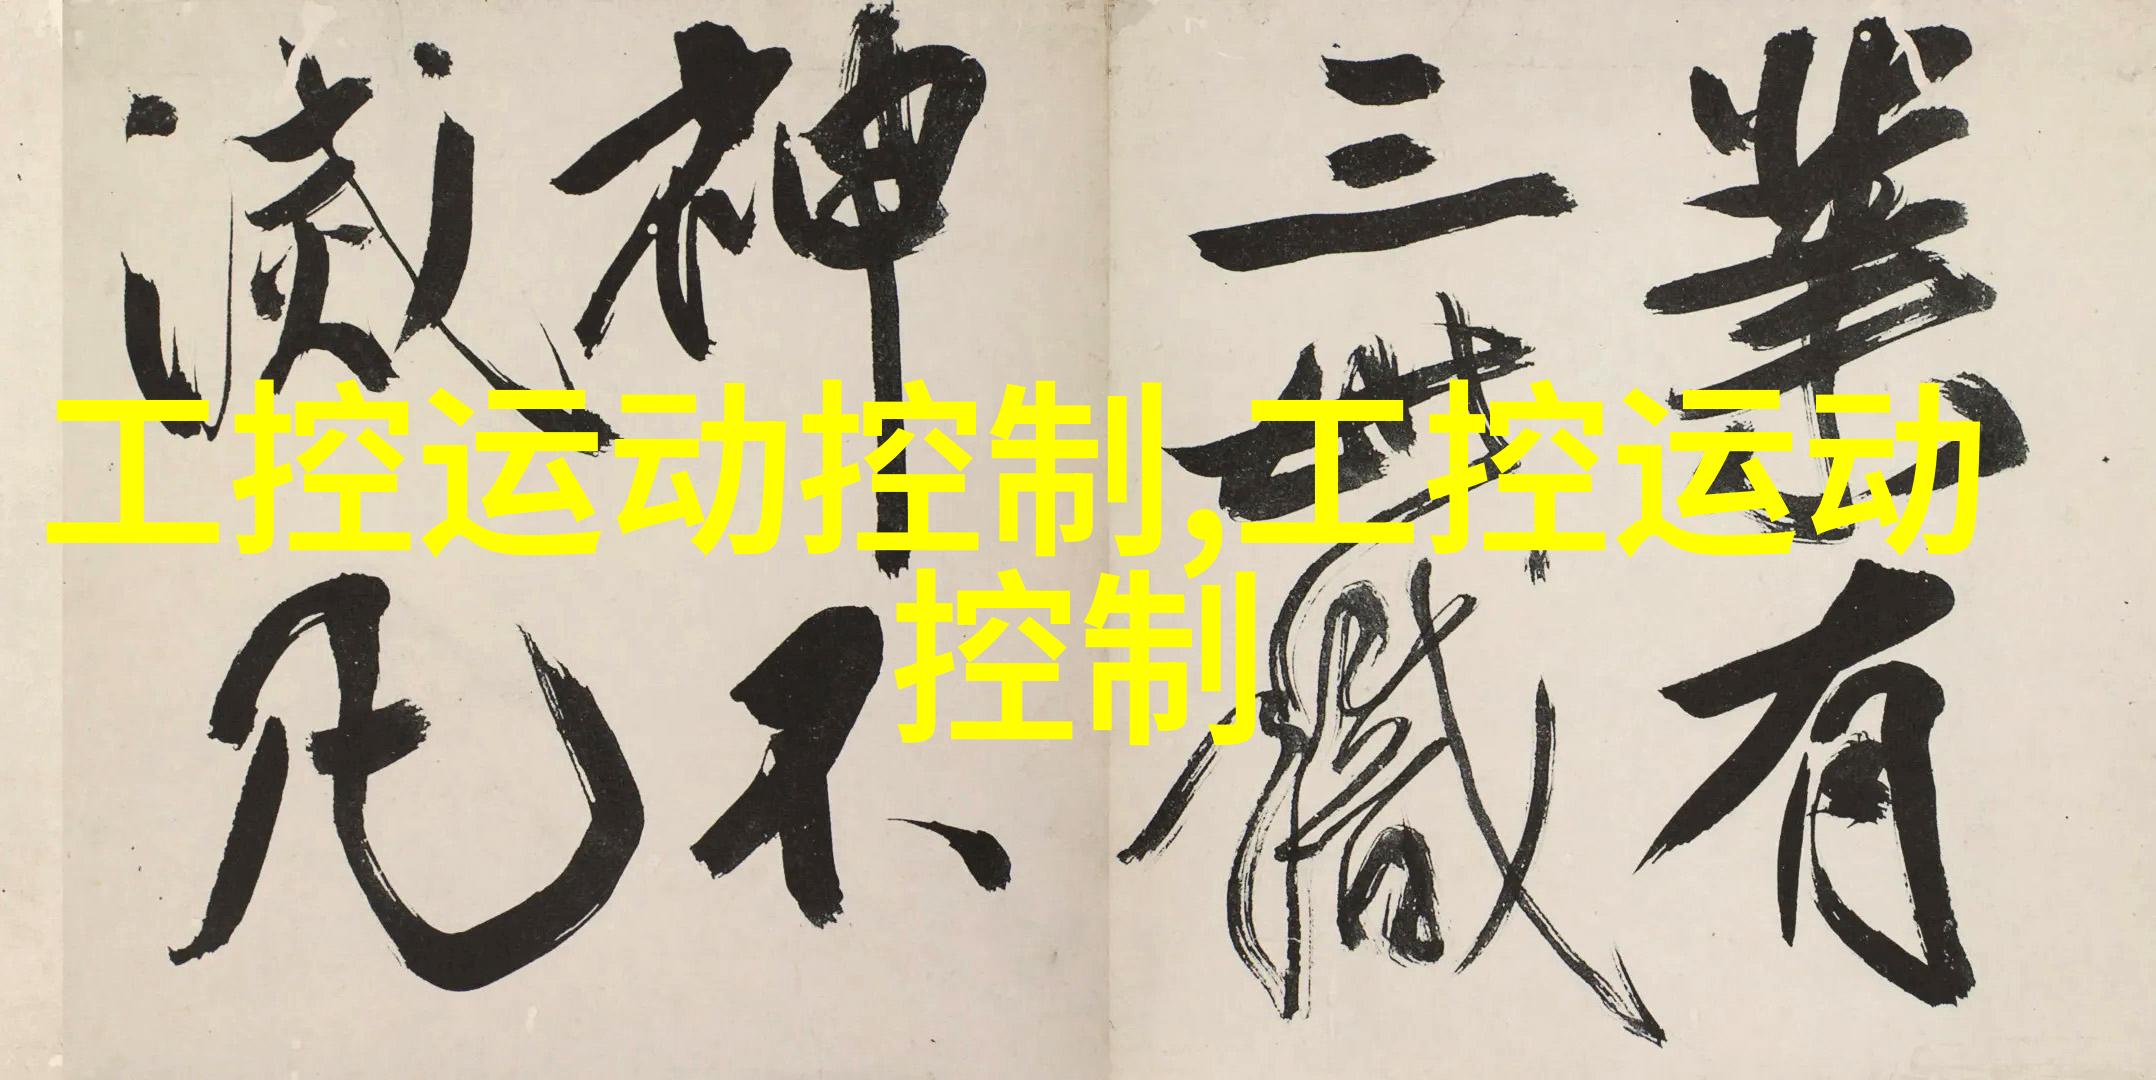 工控运动控制,工控运动
控制
業有
三世職
神不
滅凡